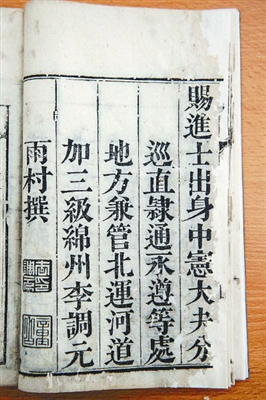 賜進士出身中憲大夫分
巡直隸通永導等處
地方兼管北運河道
加三級綿州李調元
雨村撰